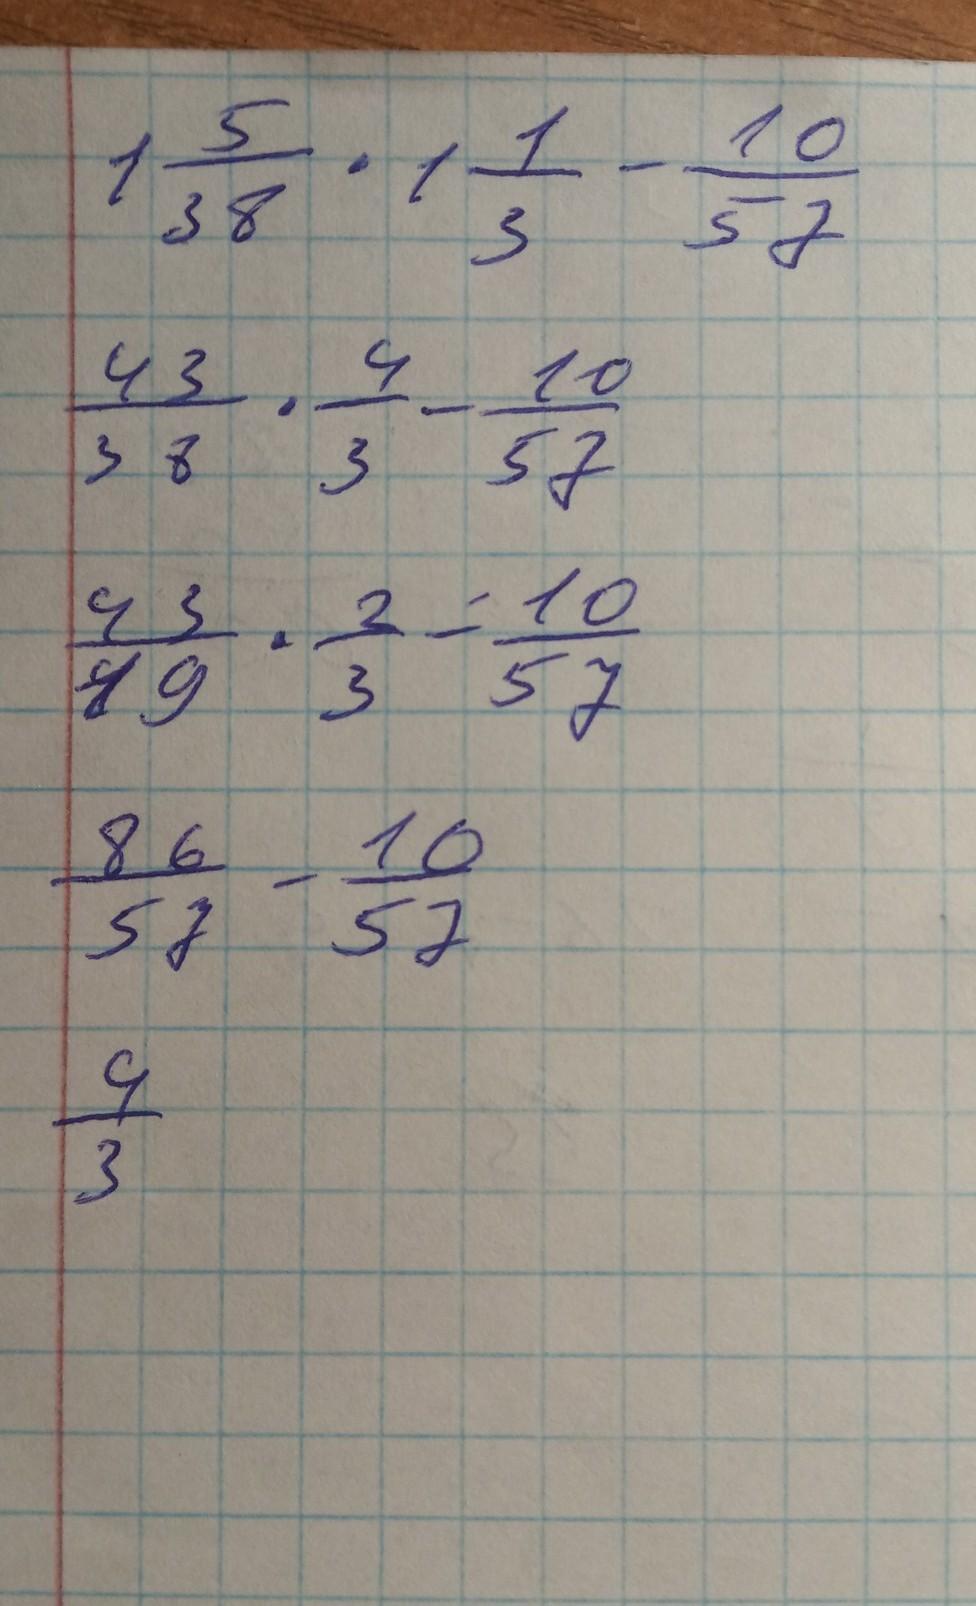 1 5/38 · 1 1/3 - 10/57
43/38 · 4/3 - 10/57
43/19 · 2/3 - 10/57
86/57 - 10/57
4/3